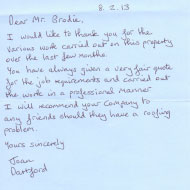 8.2.13
Dear Mr. Brodie,
I would like to thank you for the
various work carried out on this property
over the last few months
You have always given a very fair quote
for the job requirements and carried out
the work in a professional manner
I will recommend your Company to
any friends should they have a roofing
problem.
Yours sincerely
Joan
Dartford